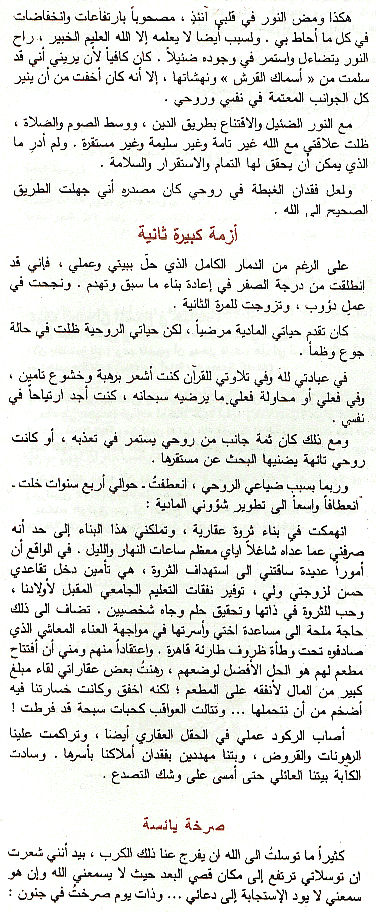 هكذا ومض النور في قلبي آنئذٍ ، مصحوباً بارتفاعات وانخفاضات
في كل ما أحاط بي . ولسبب أيضا لا يعلمه إلا الله العليم الخبير ، راح
النور يتضاءل واستمر في وجوده ضئيلاً . كان كافياً لأن يريني أني قد
سلمت من « أسماك القرش » ونهشاتها ، إلا أنه كان أخفت من أن ينير
كل الجوانب المعتمة في نفسي وروحي .
مع النور الضئيل والاقتناع بطريق الدين ، ووسط الصوم والصلاة ،
ظلت علاقتي مع الله غير تامة وغير سليمة وغير مستقرة . ولم أدرِ ما
الذي يمكن أن يحقق لها التمام والاستقرار والسلامة .
ولعل فقدان الغبطة في روحي كان مصدره أني جهلت الطريق
الصحيح الى الله .
أزمة كبيرة ثانية
على الرغم من الدمار الكامل الذي حلّ ببيتي وعملي ، فإني قد
انطلقت من درجة الصفر في إعادة بناء ما سبق وتهدم . ونجحت في
عملٍ دؤوب ، وتزوجت للمرة الثانية .
كان تقدم حياتي المادية مرضياً ، لكن حياتي الروحية ظلت في حالة
جوع وظمأ .
في عبادتي لله وفي تلاوتي للقرآن كنت أشعر برهبة وخشوع تامين ،
وفي فعلي أو محاولة فعلي ما يرضيه سبحانه ، كنت أجد ارتياحاً في
نفسي .
ومع ذلك كان ثمة جانب من روحي يستمر في تعذبه ، أو كانت
روحي تائهة يضنيها البحث عن مستقرها .
وربما بسبب ضياعي الروحي ، انعطفتُ ـ حوالي أربع سنوات خلت ـ
انعطافاً واسعاً الى تطوير شؤوني المادية :
انهمكت في بناء ثروة عقارية ، وتملكني هذا البناء إلى حد أنه
صرفني عما عداه شاغلاً اياي معظم ساعات النهار والليل . في الواقع أن
أموراً عديدة ساقتني الى استهداف الثروة ، هي تأمين دخل تقاعدي
حسن لزوجتي ولي ، توفير نفقات التعليم الجامعي المقبل لأولادنا ،
وحب للثروة في ذاتها وتحقيق حلم وجاه شخصيين . تضاف الى ذلك
حاجة ملحة الى مساعدة اختي وأسرتها في مواجهة العناء المعاشي الذي
صادفوه تحت وطأة ظروف طارئة قاهرة . واعتقاداً منهم ومني أن أفتتاح
مطعم لهم هو الحل الأفضل لوضعهم ، رهنتُ بعض عقاراتي لقاء مبلغ
كبير من المال لأنفقه على المطعم ؛ لكنه اخفق وكانت خسارتنا فيه
أضخم من أن نتحملها ... وتتالت العواقب كحبات سبحة قد فرطت !
أصاب الركود عملي في الحقل العقاري أيضا ، وتراكمت علينا
الرهونات والقروض ، وبتنا مهددين بفقدان أملاكنا بأسرها . وسادت
الكآبة بيتنا العائلي حتى أمسى على وشك التصدع .
صرخة يائسة
كثيراً ما توسلتُ الى الله ان يفرج عنا ذلك الكرب ، بيد أنني شعرت
ان توسلاتي ترتفع إلى مكان قصي البعد حيث لا يسمعني الله وإن هو
سمعني لا يود الإستجابة إلى دعائي ... وذات يوم صرختُ في جنون :